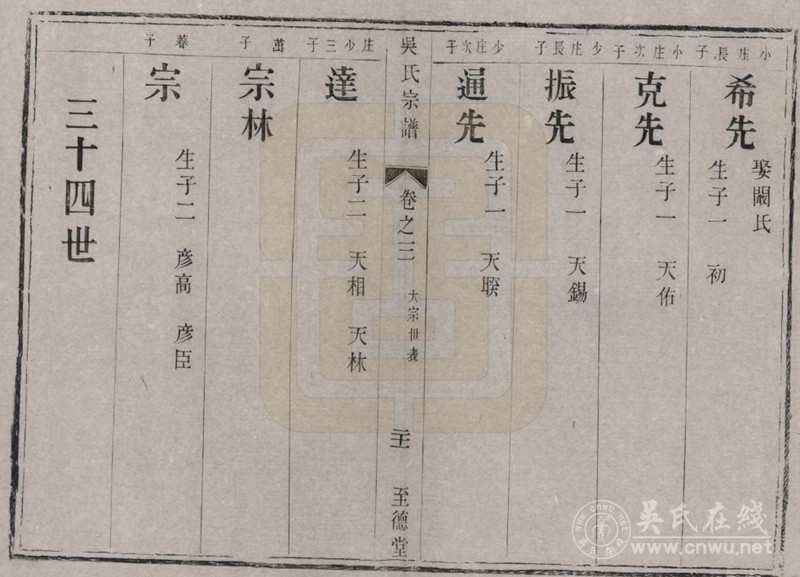 小庄長子
希先
娶闞氏
生子一 初
小庄次子
克先
生子一 天佑
少庄長子
振先
生子一 天錫
少庄次子
通先
生子一 天
吳氏宗譜
卷之三
大宗世表
至德堂
庄少三子
達
生子二 天相 天林
子
宗林
子
宗
生子二 彦高 彦臣
三十四世
吳氏在线
www.cnwu.net